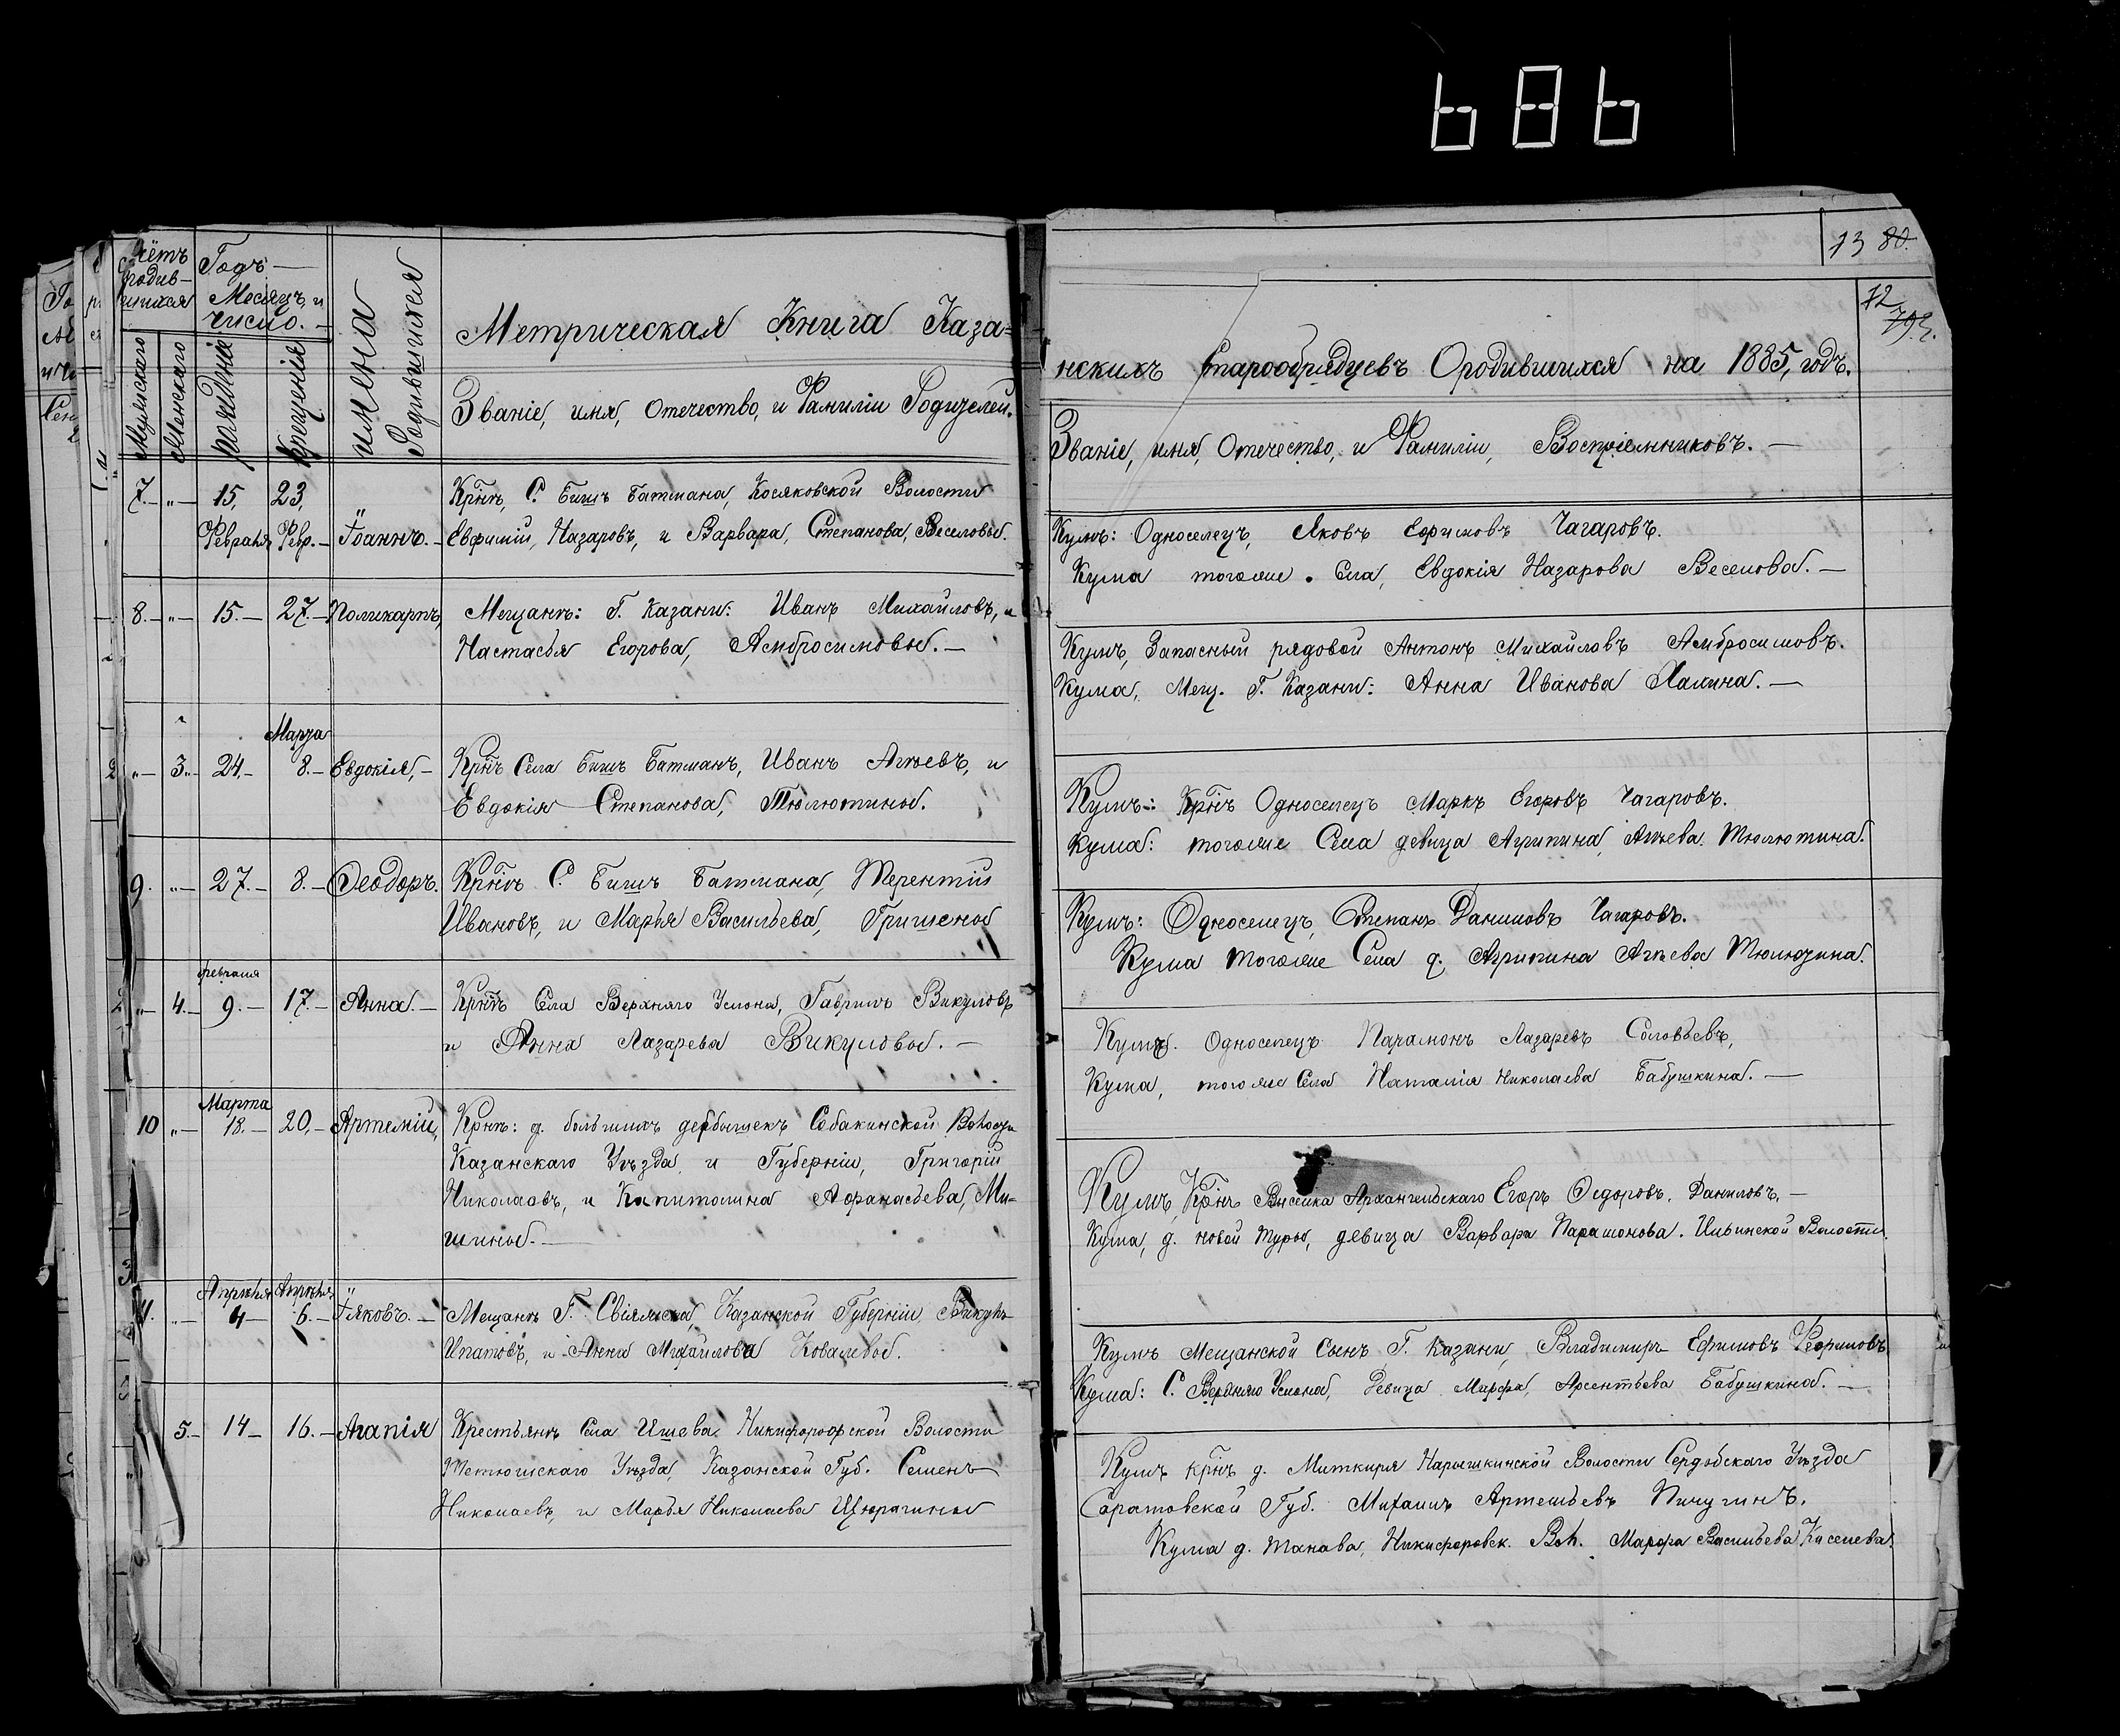 686
13 80.
72
79.
Счётъ родив-шихся
Годъ Месяцъ и число.
Мужскаго
Женскаго
рожденія
крещенія
имена Родившихся
Метрическая Книга Каза=
нскихъ Старообрядцевъ Ородившихся на 1885, годъ.
Званіе, имя, Отечество, и Фамиліи Родителей.
Званіе, имя, Отечество, и Фамиліи, Воспріемниковъ. —
7. — „ — 15, 23, Крнъ, С. Бишъ Батмана, Косяковской Волости
Февраля Февр. — Іоаннъ. — Евфимій, Назаровъ, и Варвара, Степанова, Веселовы.
Кумъ: Односелецъ, Яковъ Ефимовъ Чагаровъ.
Кума тогоже Села, Евдокія Назарова Веселова. —
8. — „ — 15. — 27. — Поликарпъ, Мещанъ: Г. Казани: Иванъ Михайловъ, и
Настасья Егорова, Амбросимовы. —
Кумъ, Запасный рядовой Антонъ Михайловъ Амбросимовъ.
Кума, Мещ. Г. Казани: Анна Иванова Халина. —
Марта
„ — 3. — 24. — 8. — Евдокія, — Крнъ Села Бишъ Батманъ, Иванъ Агѣевъ, и
Евдокія Степанова, Тюлютины.
Кумъ: Крнъ Односелецъ Маркъ Егоровъ Чагаровъ.
Кума: тогоже Села девица Агрипина, Агѣева Тюлютина.
9. „ — 27. — 8. — Ѳеодоръ. Крнъ С. Бишъ Батмана, Терентій
Ивановъ, и Марья Васильева, Гришены
Кумъ: Односелецъ, Степанъ Даниловъ Чагаровъ.
Кума тогоже Села д. Агрипина Агѣева Тюлютина.
февраля
„ — 4. — 9. — 17. — Анна. — Крнъ Села Верхняго Услона, Гаврилъ Викуловъ
и Анна Лазарева Викуловы. —
Кумъ. Односелецъ Парамонъ Лазаревъ Соловьевъ,
Кума, тогоже Села Наталія Николаева Бабушкина. —
Марта
10 „ — 18. — 20, — Артемій, Крнъ: д. большихъ дербышекъ Собакинской Волости
Казанскаго Уѣзда и Губерніи, Григорій
Николаевъ, и Капитолина Афанасьева, Ми=
шины. —
Кумъ, Крнъ Выселка Архангельскаго Егоръ Ѳедоровъ. Даниловъ, —
Кума, д. новой Туры, девица Варвара Парамонова. Ильинской Волости.
Апрѣля Апрѣля
„ — 4 — 6. — Іяковъ. — Мещанъ Г. Свіяжска, Казанской Губерніи, Викулъ
Ипатовъ, и Анна Михайлова Ковалевы.
Кумъ Мещанской Сынъ Г. Казани, Владимиръ Ефимовъ
Кума: С. Верхняго Услона, Девица Марфа, Арсентьева Бабушкина. —
5. — 14 — 16. — Агапія Крестьянъ Села Ишева Никифоровской Волости
Тетюшскаго Уѣзда, Казанской Губ. Семенъ
Николаевъ, и Марья Николаева
Кумъ крнъ д. Миткиря Нарышкинской Волости Сердобскаго Уѣзда
Саратовской Губ. Михаилъ Артемьевъ Пичугинъ.
Кума д. Танава, Никифоровск. Вол. Марфа Васильева Киселева.